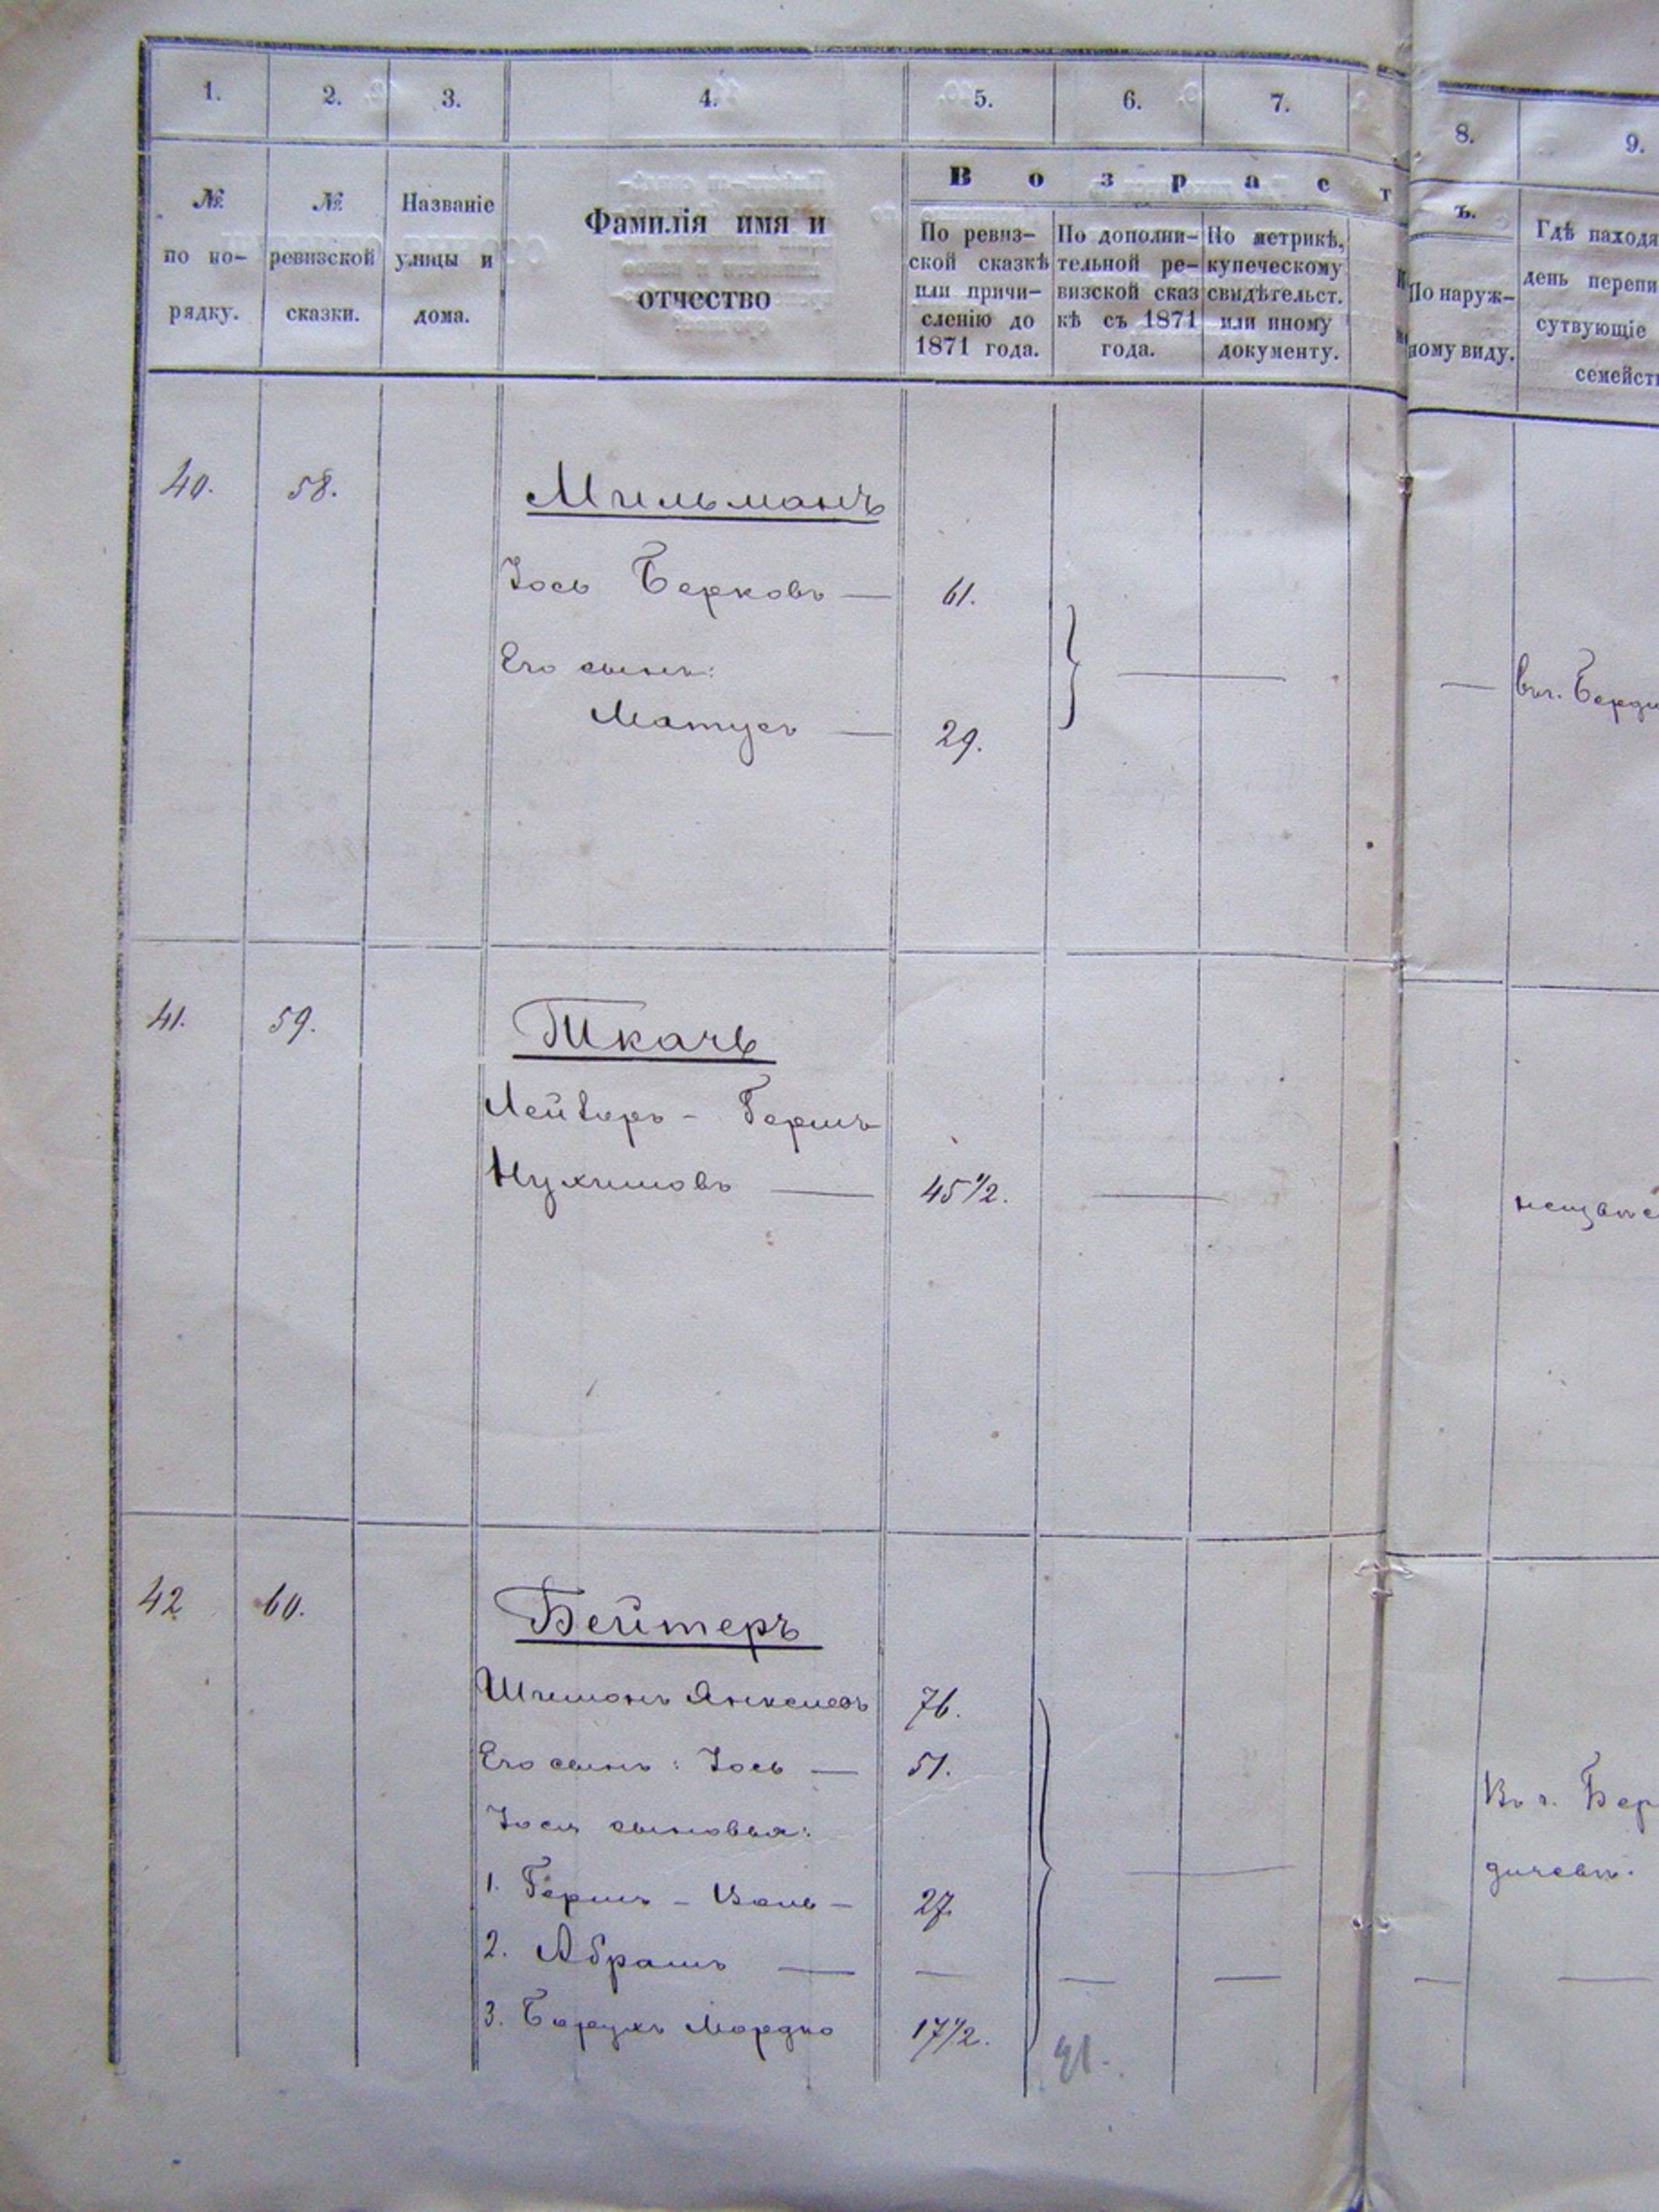 1. 2. 3. 4. 5. 6. 7. 8. 9.
В о з р а с т
ъ.
№ по по-рядку.
№ ревизской сказки.
Названіе улицы и дома.
Фамилія имя и отчество
По ревиз-ской сказкѣ или причи-сленію до 1871 года.
По дополни-тельной ре-визской сказ кѣ съ 1871 года.
По метрикѣ, купеческому свидѣтельст. или иному документу.
По наруж-ному виду.
Гдѣ находя
день перепи
сутвующіе
семейст
40. 58. Мильманъ
Іось Берковъ — 61.
Его сынъ:
Матусъ — 29. — — Въ г. Берди
41. 59. Ткачъ
Лейзеръ - Гершъ
Нухимовъ — 45 1/2. — неизвѣс
42 60. Бейтеръ
Шимонъ Янкелевъ 76.
Его сынъ: Іось — 51.
Въ г. Бер
Іося сыновья:
дичевѣ.
1. Гершъ - Волъ - 27. —
2. Абрамъ — — — — — —
3. Борухъ Мордко 17 1/2.